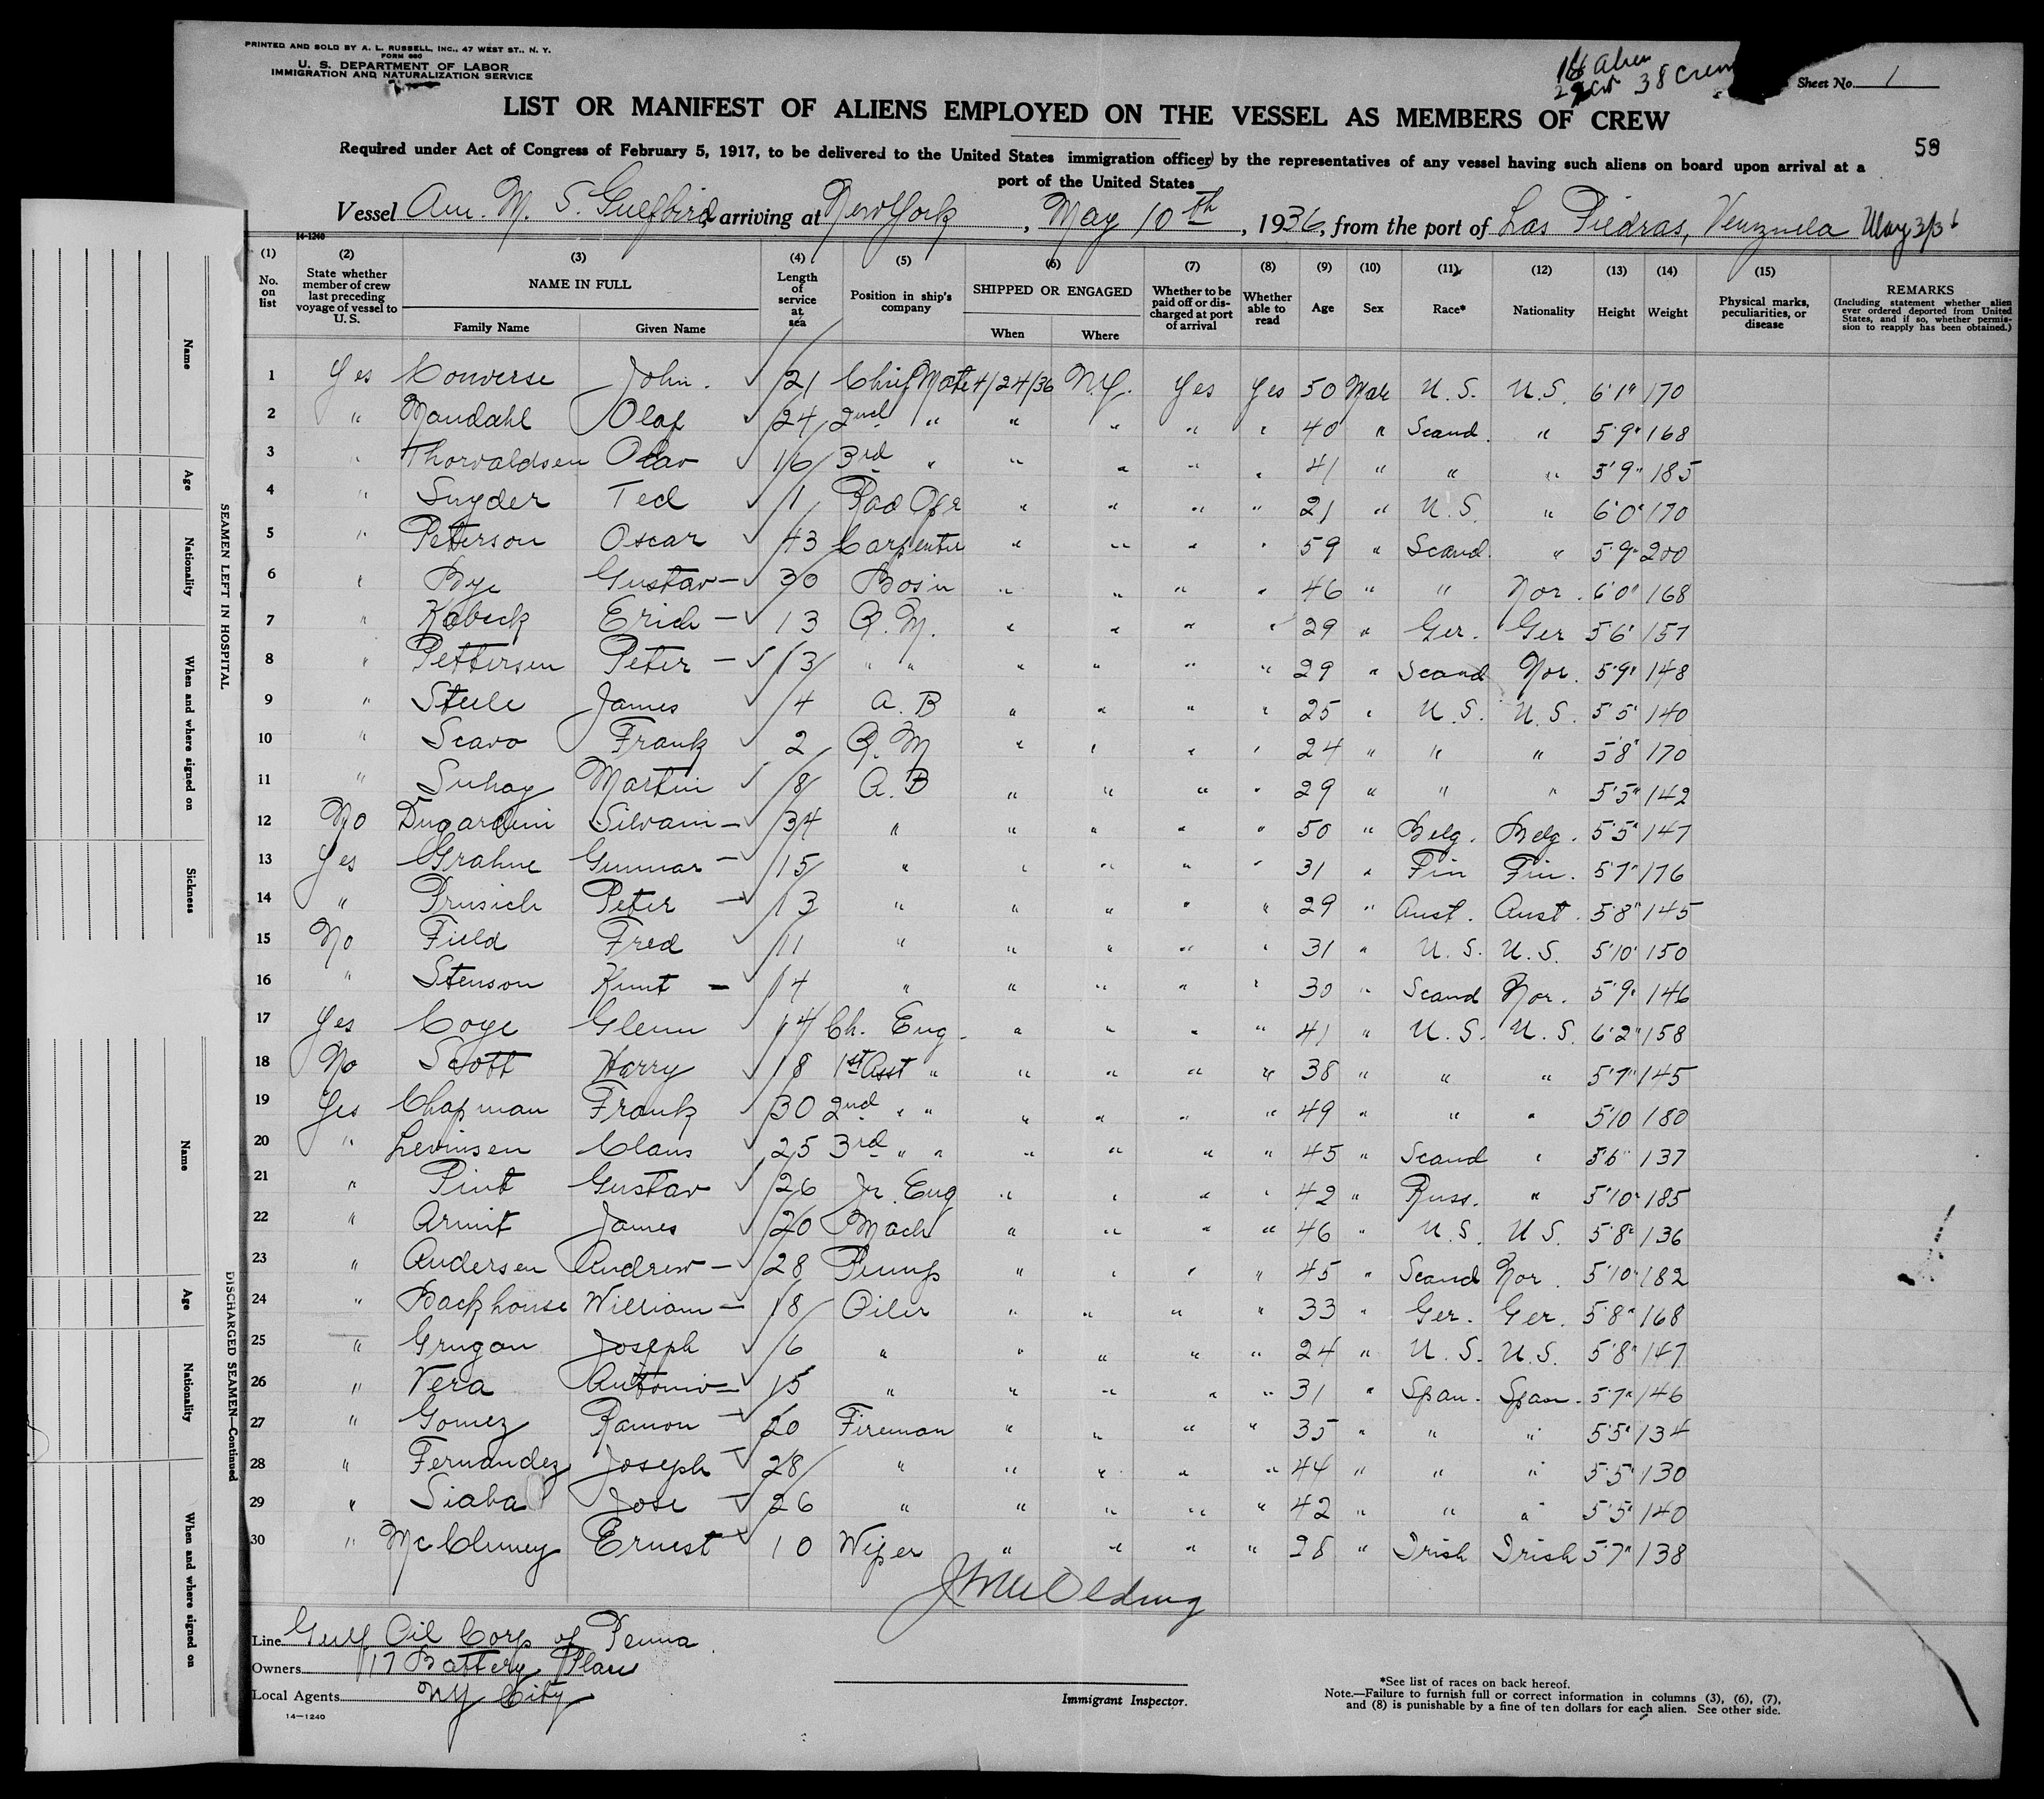 PRINTED AND SOLD BY A. L. RUSSELL, INC., 47 WEST ST., N. Y.
FORM 680
U. S. DEPARTMENT OF LABOR
IMMIGRATION AND NATURALIZATION SERVICE
16 alien
38 Crew
Sheet No. 1
LIST OR MANIFEST OF ALIENS EMPLOYED ON THE VESSEL AS MEMBERS OF CREW
58
Required under Act of Congress of February 5, 1917, to be delivered to the United States immigration officer by the representatives of any vessel having such aliens on board upon arrival at a
port of the United States
Vessel Am. M. S. Gulfbird, arriving at New York, May 10th, 1936, from the port of Las Piedras, Venzuela May 3/36
14-1240
(1) (2) (3) (4) (5) (6) (7) (8) (9) (10) (11) (12) (13) (14) (15)
No. on list
State whether member of crew last preceding voyage of vessel to U. S.
NAME IN FULL
Family Name Given Name
Length of service at sea
Position in ship's company
SHIPPED OR ENGAGED
When Where
Whether to be paid off or discharged at port of arrival
Whether able to read
Age Sex Race* Nationality Height Weight
Physical marks, peculiarities, or disease
REMARKS
(Including statement whether alien ever ordered deported from United States, and if so, whether permission to reapply has been obtained.)
1 Yes Converse John. 21 Chief Mate 4/24/36 N.Y. Yes Yes 50 Male U.S. U.S. 6'1" 170
2 " Mandahl Olaf 24 2nd " " " " " 40 " Scand. " 5'9" 168
3 " Thorvaldsen Olav 16 3rd " " " " " 41 " " " 5'9" 185
4 " Snyder Ted 1 Rad Ofr " " " " 21 " U.S. " 6'0" 170
5 " Petterson Oscar 43 Carpenter " " " " 59 " Scand. " 5'9" 200
6 " Bye Gustav - 30 Bos'n " " " " 46 " " Nor. 6'0" 168
7 " Kobeck Erich - 13 Q.M. " " " " 29 " Ger. Ger 5'6" 157
8 " Pettersen Peter - 13 " " " " " " 29 " Scand Nor. 5'9" 148
9 " Steele James 4 A.B " " " " 25 " U.S. U.S. 5'5" 140
10 " Scavo Frank 2 Q.M " " " " 24 " " " 5'8" 170
11 " Suhay Martin 8 A.B " " " " 29 " " " 5'5" 142
12 No Dugardein Silvain - 34 " " " " " 50 " Belg. Belg. 5'5" 147
13 Yes Grahne Gunnar - 15 " " " " " 31 " Fin Fin. 5'7" 176
14 " Prusich Peter - 13 " " " " " 29 " Aust. Aust. 5'8" 145
15 No Field Fred 11 " " " " " 31 " U.S. U.S. 5'10" 150
16 " Stenson Knut - 14 " " " " " 30 " Scand Nor. 5'9" 146
17 Yes Coye Glenn 14 Ch. Eng. " " " " 41 " U.S. U.S. 6'2" 158
18 No Scott Harry 18 1st Asst " " " " " 38 " " " 5'7" 145
19 Yes Chapman Frank 30 2nd " " " " " " 49 " " " 5'10 180
20 " Levinsen Claus 25 3rd " " " " " " 45 " Scand " 5'6" 137
21 " Pint Gustav 26 Jr. Eng " " " " 42 " Russ. " 5'10" 185
22 " Armit James 20 Mach " " " " 46 " U.S. U.S. 5'8" 136
23 " Andersen Andrew - 28 Pump " " " " 45 " Scand Nor. 5'10" 182
24 " Backhouse William - 18 Oiler " " " " 33 " Ger. Ger. 5'8" 168
25 " Grugan Joseph 6 " " " " " 24 " U.S. U.S. 5'8" 147
26 " Vera Antonio - 15 " " " " " 31 " Span. Span. 5'7" 146
27 " Gomez Ramon - 20 Fireman " " " " 35 " " " 5'5" 134
28 " Fernandez Joseph - 28 " " " " " 44 " " " 5'5" 130
29 " Siaba Jose - 26 " " " " " 42 " " " 5'5" 140
30 " McCluney Ernest 10 Wiper " " " " 28 " Irish Irish 5'7" 138
Line Gulf Oil Corp of Penna.
Owners 17 Battery Place
Local Agents NY City
14—1240
Immigrant Inspector.
*See list of races on back hereof.
Note.—Failure to furnish full or correct information in columns (3), (6), (7),
and (8) is punishable by a fine of ten dollars for each alien. See other side.
SEAMEN LEFT IN HOSPITAL
Name
Age
Nationality
When and where signed on
Sickness
DISCHARGED SEAMEN—Continued
Name
Age
Nationality
When and where signed on